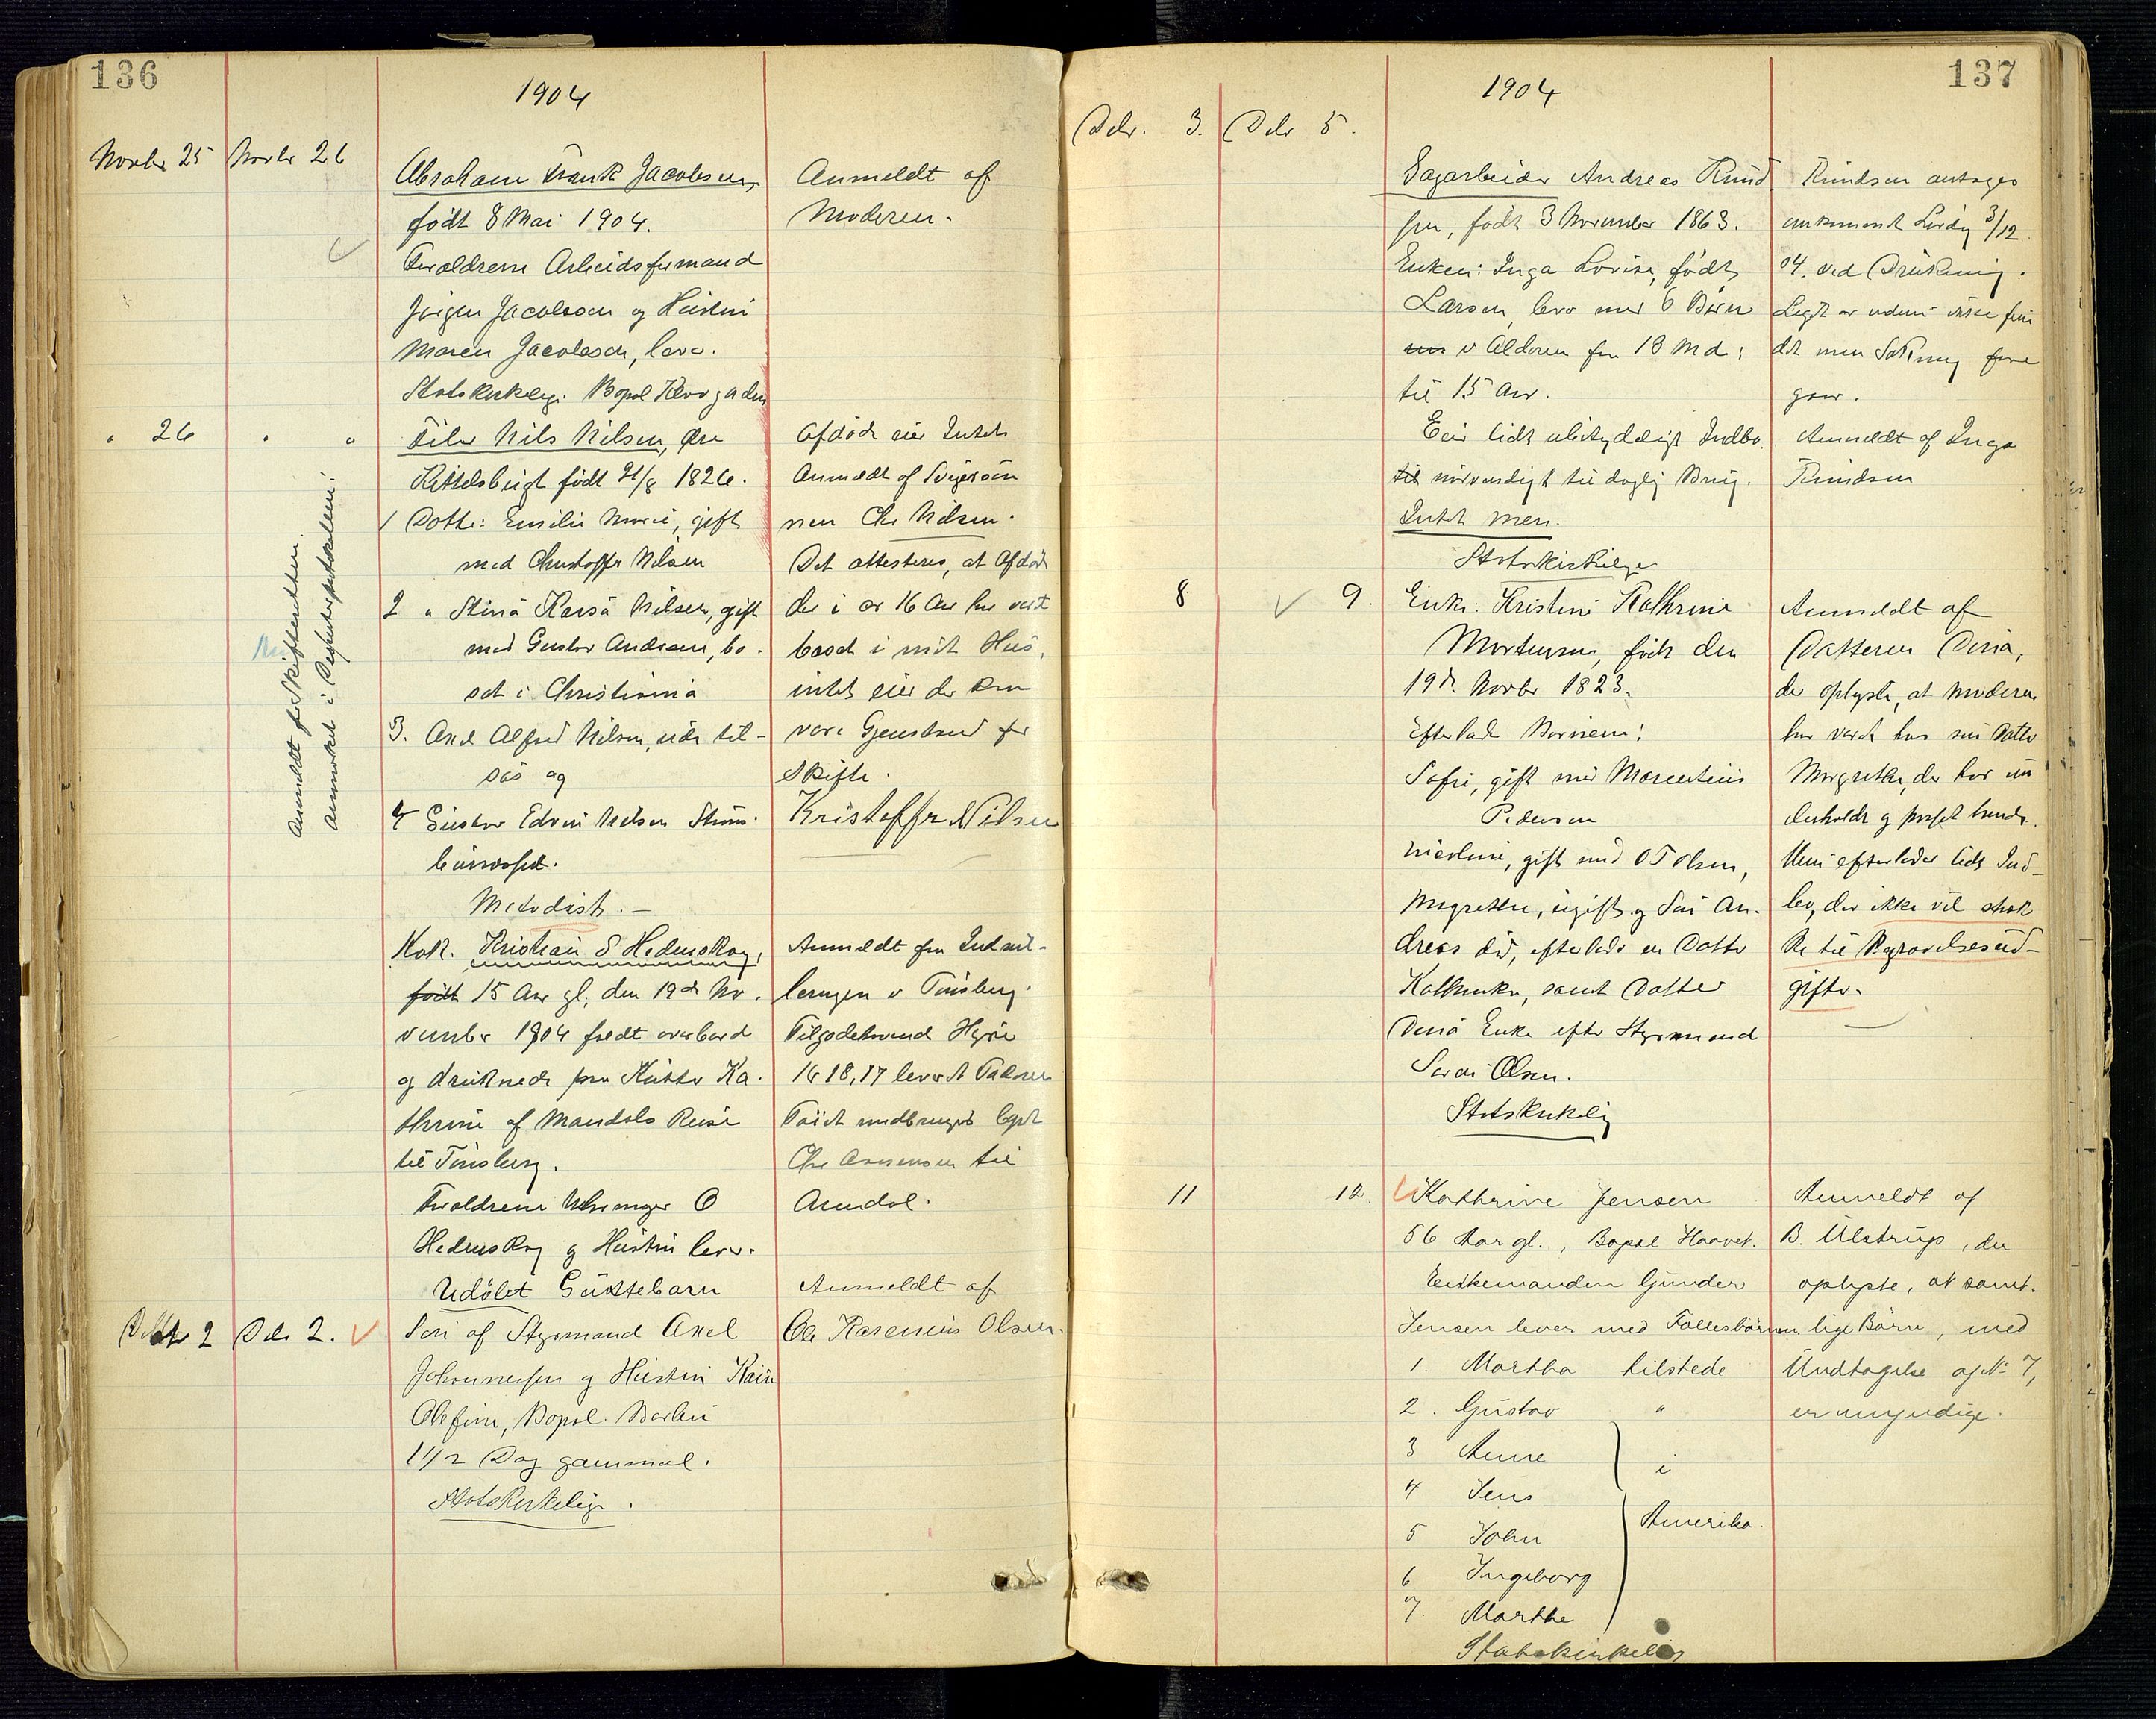 136
1904
Novbr 25
Novbr 26
Abraham Frank Jacobsen,
født 8 Mai 1904.
Forældrene Arbeidsformand
Jörgen Jacobsen og Hustru
Maren Jacobsen, lever.
Statskirkelig. Bopæl
Anmeldt af
Moderen.
" 26
" "
Nils Nilsen,
født 21/8 1826.
1 Datter: Emilie Marie, gift
med Christoffer Nilsen
2 " Nilsen, gift
med Gustav Andersen, bo-
sat i Christiania
3. Axel Alfred Nilsen, til-
søs og
4 Gustav Edvin Nilsen
Metodist. —
Afdøde eier Intet
Anmeldt af Svigersön
nen Chr Nilsen.
Det attesteres, at Afdø
de i ca 16 Aar har vært
boset i mit Hus,
intet eier der kan
være Gjenstand for
Skifte.
Kristoffer Nilsen
Anmeldt for Skifteretten.
Anmærket i Registerprotokollen:
Kok. Kristian S Hedenskog,
født 15 Aar gl, den 19de No-
vember 1904 faldt overbord
og druknede fra Kutter Ka-
thrine af Mandal paa Reise
til Tönsberg.
Forældrene O
Hedenskog og Hustru lever.
Anmeldt fra Indrul-
leringen i Tönsberg.
Tilgodehavende Hyre
Kr 18,17 leveret
Töiet
Chr til
Arendal.
Dcbr 2
Dcbr 2.
Udöbt Guttebarn
Sön af Styrmand Axel
Johannessen og Hustru
Olefine, Bopæl.
1 1/2 Dag gammel.
Statskirkelig.
Anmeldt af
Ole Rasmus Olsen.
137
1904
Dcbr. 3.
Dcbr 5.
Sagarbeider Andreas Knud
sen, født 3 November 1863.
Enken: Inga Lovise, født
Larsen, lever med 6 Börn
i Alderen fra 18 Md:
til 15 Aar.
Eier lidt ubetydeligt Indbo,
til nödvendigt til daglig Brug.
Intet mere.
Statskirkelig
Knudsen antages
omkommet Lördag 3/12
04. ved Drukning.
Liget er endnu ikke fun
det men Sökning fore
gaar.
Anmeldt af Inga
Knudsen
8.
9.
Enke: Kristine Kathrine
Mortensen, født den
19de Novbr 1823.
Efterlader Börnene:
Sofie, gift med Marentius
Pedersen
Nicoline, gift med O T Olsen,
Magrethe, ugift og Sön An-
dreas död, efterlader en Datter
Kathinka, samt Datter
Dina Enke efter Styrmand
Olsen.
Statskirkelig
Anmeldt af
Datteren Dina,
der oplyste, at Moderen
har været hos sin Datter
Magrethe, der har un
derholdt og passet hende.
Hun efterlader lidt Ind-
bo, der ikke vil stræk
ke til Begravelsesud-
gifter.
11
12.
Kathrine Jensen
56 Aar gl., Bopæl Haavet.
Enkemanden Gunder
Jensen lever med Fællesbörnene.
1. Martha tilstede
2. Gustav "
3 Anne
4 Jens
5 John
6 Ingeborg
7. Marthe
i
Amerika.
Statskirkelig
Anmeldt af
B. Ulstrup, der
oplyste, at samt-
lige Börn, med
Undtagelse af No 7,
er myndige.